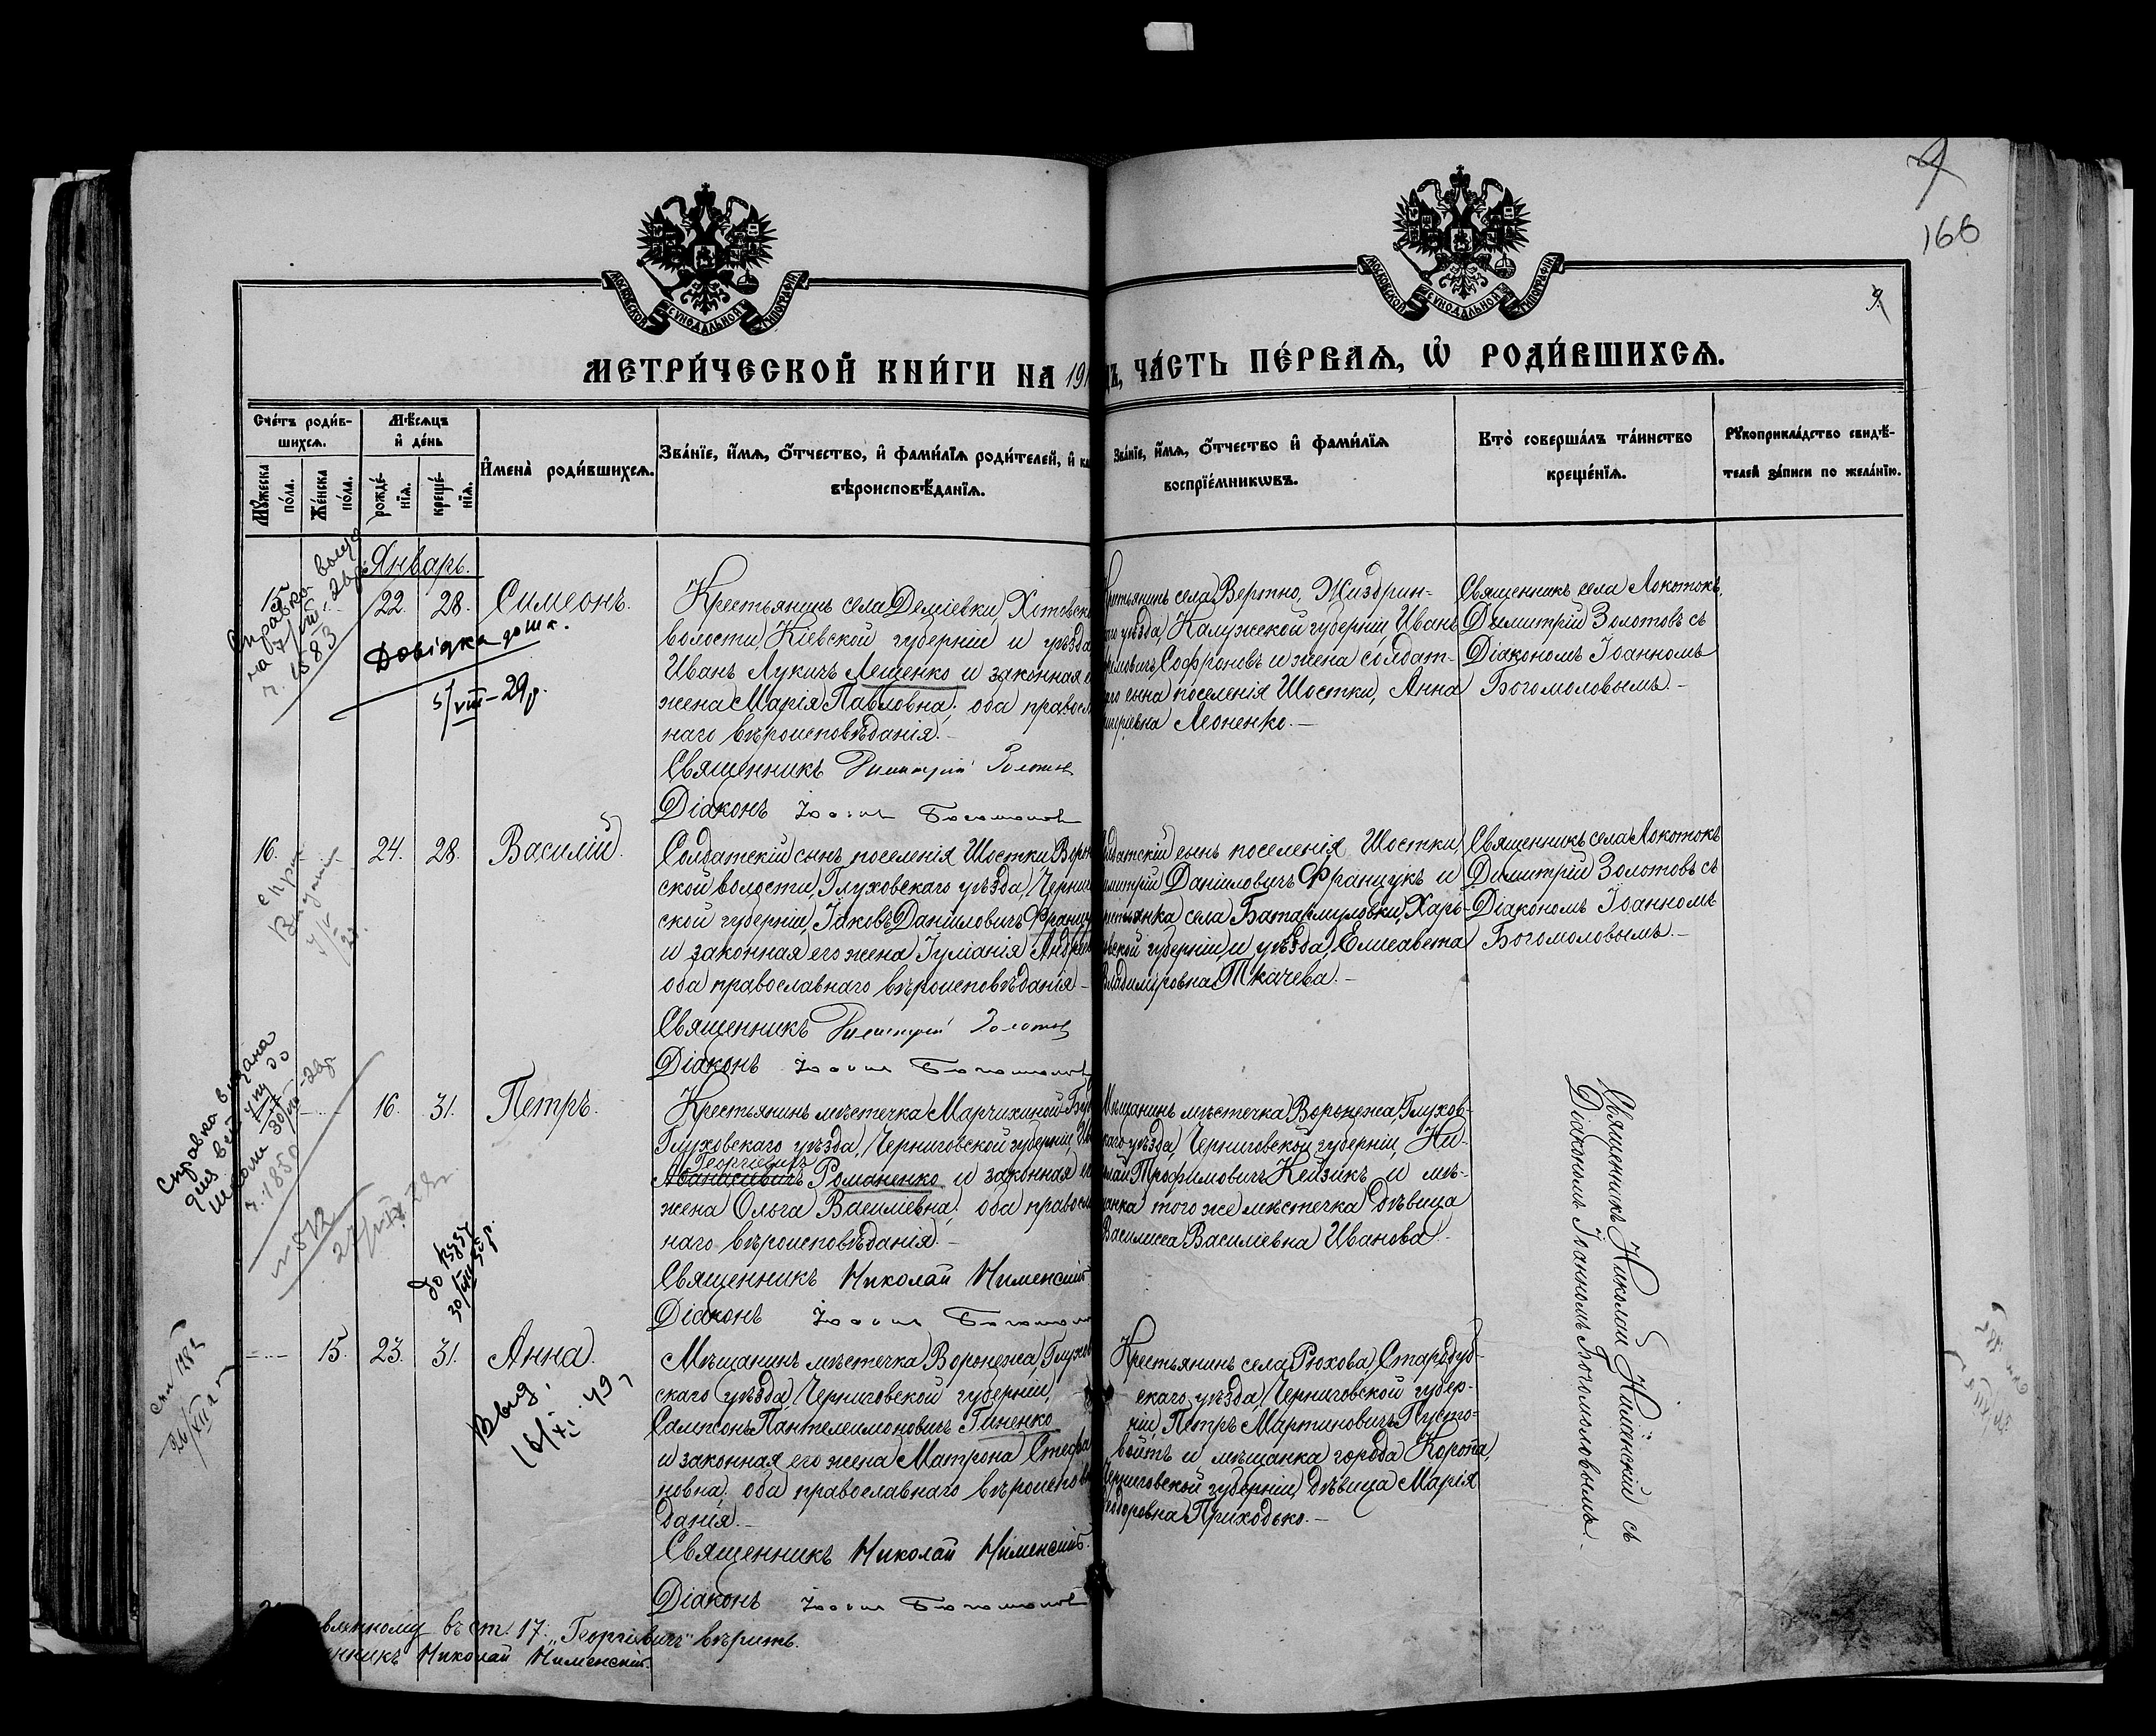 166
МОСКОВСКОЙ СѴНОДАЛЬНОЙ ТИПОГРАФІИ
МОСКОВСКОЙ СѴНОДАЛЬНОЙ ТИПОГРАФІИ
МЕТРИ́ЧЕСКОЙ КНИ́ГИ НА 191
ЧА́СТЬ ПЕ́РВАѦ, Ѡ҆ РОДИ́ВШИХСѦ.
Сче́тъ роди́в-
шихсѧ.
Мꙋ́жеска по́ла.
Же́нска по́ла.
Мѣ́сѧцъ
и҆ де́нь
рожде́-
нїѧ.
креще́-
нїѧ.
И҆мена̀ роди́вшихсѧ.
Зва́нїе, и҆́мѧ, ѻ҆́тчество, и҆ фами́лїѧ роди́телей, и҆
вѣроисповѣ́данїѧ.
Зва́нїе, и҆́мѧ, ѻ҆́тчество и҆ фами́лїѧ
воспрїе́мникѡвъ.
Кто̀ соверша́лъ та́инство
креще́нїѧ.
Рꙋкоприкла́дство свидѣ́-
телей за́писи по жела́нїю.
Январь.
15 22. 28. Симеонъ.
Крестьянинъ села Деміевки, Хотовск
волости, Кіевской губерніи и уѣзда
Иванъ Лукичъ Лещенко и законная
жена Марія Павловна; оба правосл
наго вѣроисповѣданія.-
Священникъ Димитрій Золотов
Діаконъ Іоанн Богомолов
Крестьянинъ села Вертно, Жиздрин-
уѣзда, Калужской губерніи Иванъ
Софроновъ и жена солдат-
сына поселенія Шостки, Анна
Леоненко.-
Священникъ села Локотокъ,
Димитрій Золотовъ съ
Діакономъ Іоанномъ
Богомоловымъ.-
ч. 1583
Довідка
5/VIII-29р.
16. 24. 28. Василій.
Солдатскій сынъ поселенія Шостки Ворон
ской волости, Глуховскаго уѣзда, Черниг
ской губерніи, Іаковъ Даниловичъ Францу
и законная его жена Іуліанія Андре
оба православнаго вѣроисповѣданія-
Священникъ Димитрій Золотов
Діаконъ Іоанн Богомолов
Солдатскій сынъ поселенія Шостки,
Димитрій Даниловичъ Францукъ и
крестьянка села Харь-
ковской губерніи и уѣзда, Елисавета
Владиміровна Ткачева.-
Священникъ села Локотокъ
Димитрій Золотовъ съ
Діакономъ Іоанномъ
Богомоловымъ.-
16. 31. Петръ.
Крестьянинъ мѣстечка Марчихиной-Буд
Глуховскаго уѣзда, Черниговской губерніи,
Георгіевичъ
Аѳанасіевичъ Романенко и законная
жена Ольга Василіевна; оба правосл
наго вѣроисповѣданія.-
Священникъ Николай
Діаконъ Іоанн Богомолов
Мѣщанинъ мѣстечка Воронежа, Глухов-
скаго уѣзда, Черниговской губерніи, Ни-
колай Трофимовичъ Кейзикъ и мѣ-
щанка того же мѣстечка дѣвица
Василисса Василіевна Иванова.-
Справка видана
ч. 1850
15. 23. 31. Анна.
Мѣщанинъ мѣстечка Воронежа, Глухов
скаго уѣзда, Черниговской губерніи,
Сампсонъ Пантелеимоновичъ Гиненко
и законная его жена Матрона Стефа
новна; оба православнаго вѣроисповѣ
данія.-
Священникъ Николай
Діаконъ Іоанн Богомолов
Крестьянинъ села Рюхова, Стародуб-
скаго уѣзда, Черниговской губер-
ніи, Петръ Мартиновичъ Пусто-
войтъ и мѣщанка города Коропа,
Черниговской губерніи, дѣвица Марія
Ѳеодоровна Приходько.-
Священникъ Николай съ
Діакономъ Іоанномъ Богомоловымъ.
въ ст. 17: „Георгіевичъ" вѣрить.
Николай